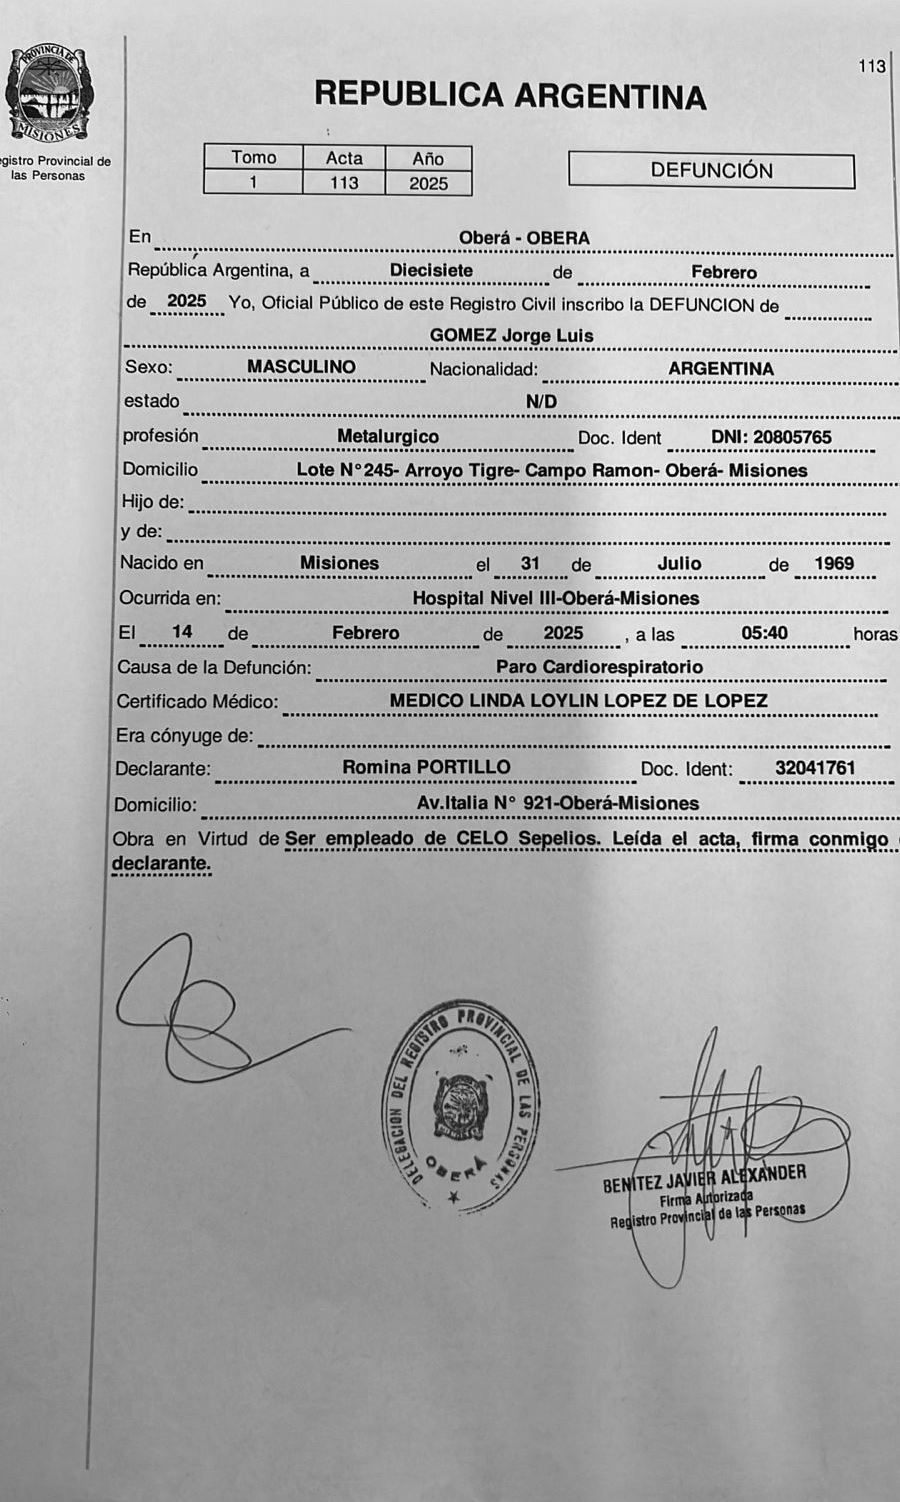 113
PROVINCIA DE
MISIONES
Registro Provincial de
las Personas
REPUBLICA ARGENTINA
Tomo Acta Año
1 113 2025
DEFUNCIÓN
En Oberá - OBERA
República Argentina, a Diecisiete de Febrero
de 2025 Yo, Oficial Público de este Registro Civil inscribo la DEFUNCION de
GOMEZ Jorge Luis
Sexo: MASCULINO Nacionalidad: ARGENTINA
estado N/D
profesión Metalurgico Doc. Ident DNI: 20805765
Domicilio Lote N°245- Arroyo Tigre- Campo Ramon- Oberá- Misiones
Hijo de:
y de:
Nacido en Misiones el 31 de Julio de 1969
Ocurrida en: Hospital Nivel III-Oberá-Misiones
El 14 de Febrero de 2025 , a las 05:40 horas
Causa de la Defunción: Paro Cardiorespiratorio
Certificado Médico: MEDICO LINDA LOYLIN LOPEZ DE LOPEZ
Era cónyuge de:
Declarante: Romina PORTILLO Doc. Ident: 32041761
Domicilio: Av.Italia N° 921-Oberá-Misiones
Obra en Virtud de Ser empleado de CELO Sepelios. Leída el acta, firma conmigo
declarante.
DELEGACION DEL REGISTRO PROVINCIAL DE LAS PERSONAS
OBERÁ
BENITEZ JAVIER ALEXANDER
Firma Autorizada
Registro Provincial de las Personas